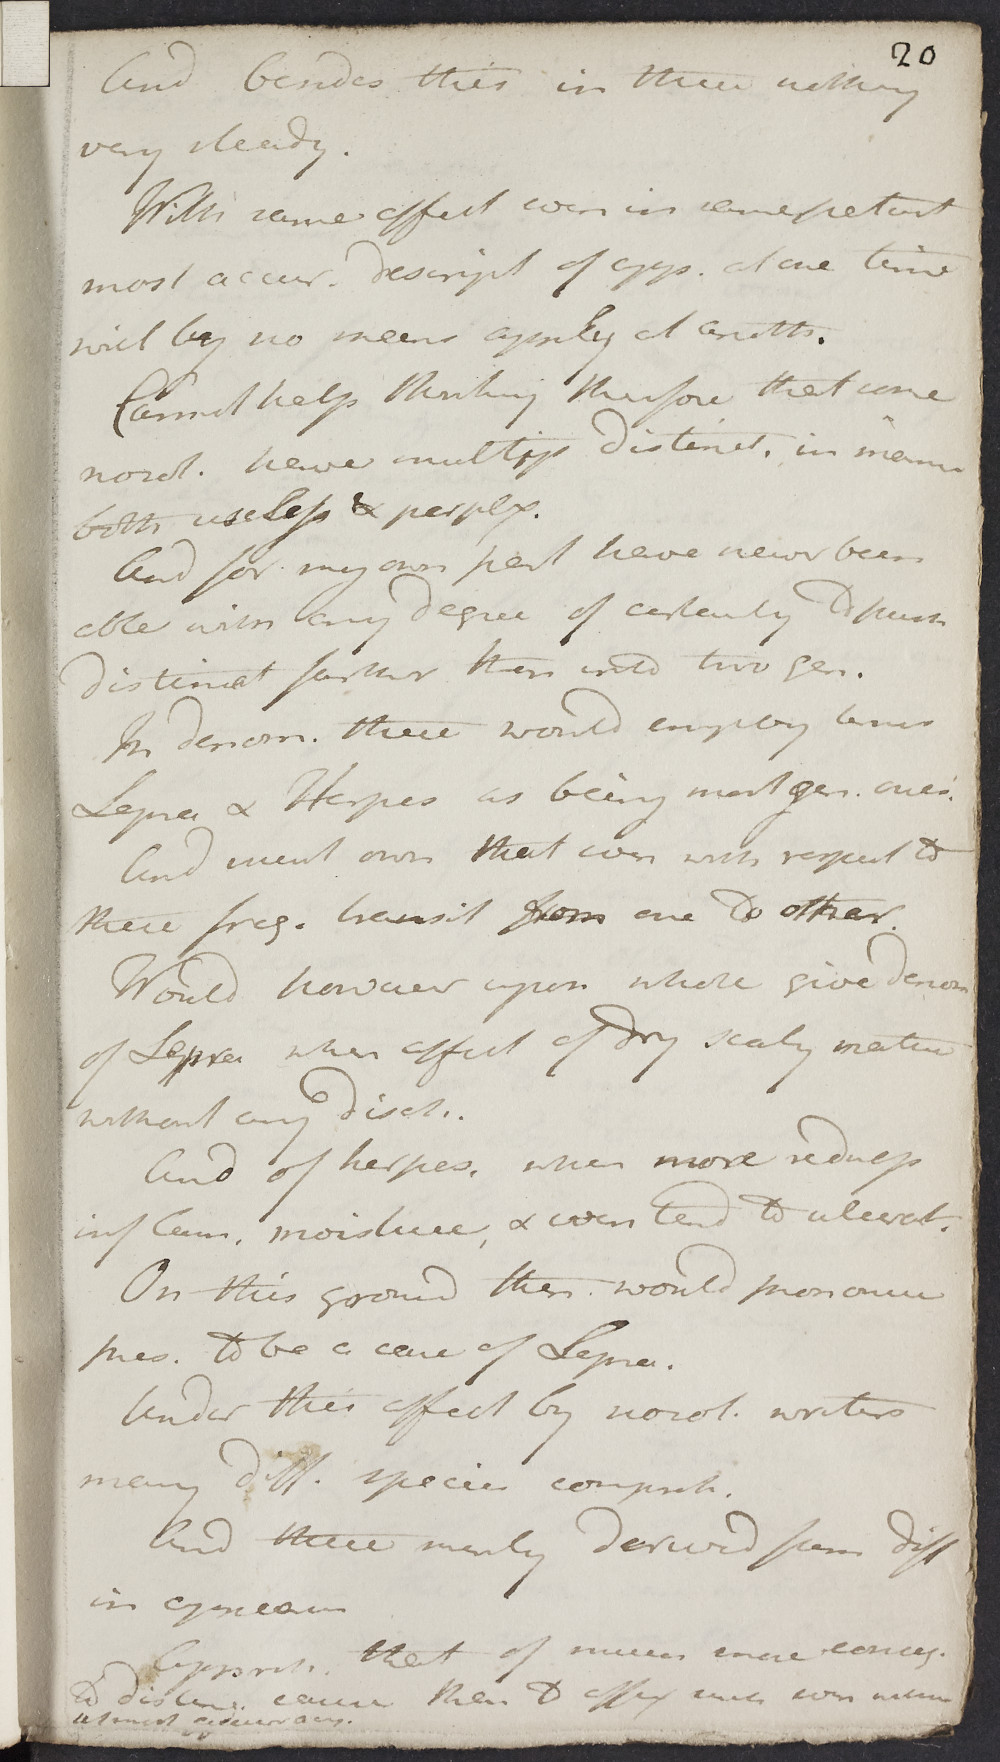 20
And besides this in these nothing
very steady.
With same affect even in same patient
most accur. descript of app. at one time
will by no means apply at anoth.
Cannot help thinking therefore that some
nosol. have multip distinct. in mann
both useless & perplex.
And for my own part have never been
able with any degree of certainty to push
distinct farther than into two gen.
In denom. these would employ terms
Lepra & Herpes as being most gen. ones.
And must own that even with respect to
these freq. transit from one to other.
Would however upon whole give denom
of Lepra when affect of dry scaly nature
without any disch.
And of herpes. when more redness
inflam. moisture, & even tend to ulcerat.
On this ground then would pronounce
pres. to be a case of Lepra.
Under this affect by nosol. writers
many diff. species compreh.
And these mostly derived from diff
in appearan
Appreh. that of much more conseq.
to disting. cause than to affix such even with
utmost accuracy.